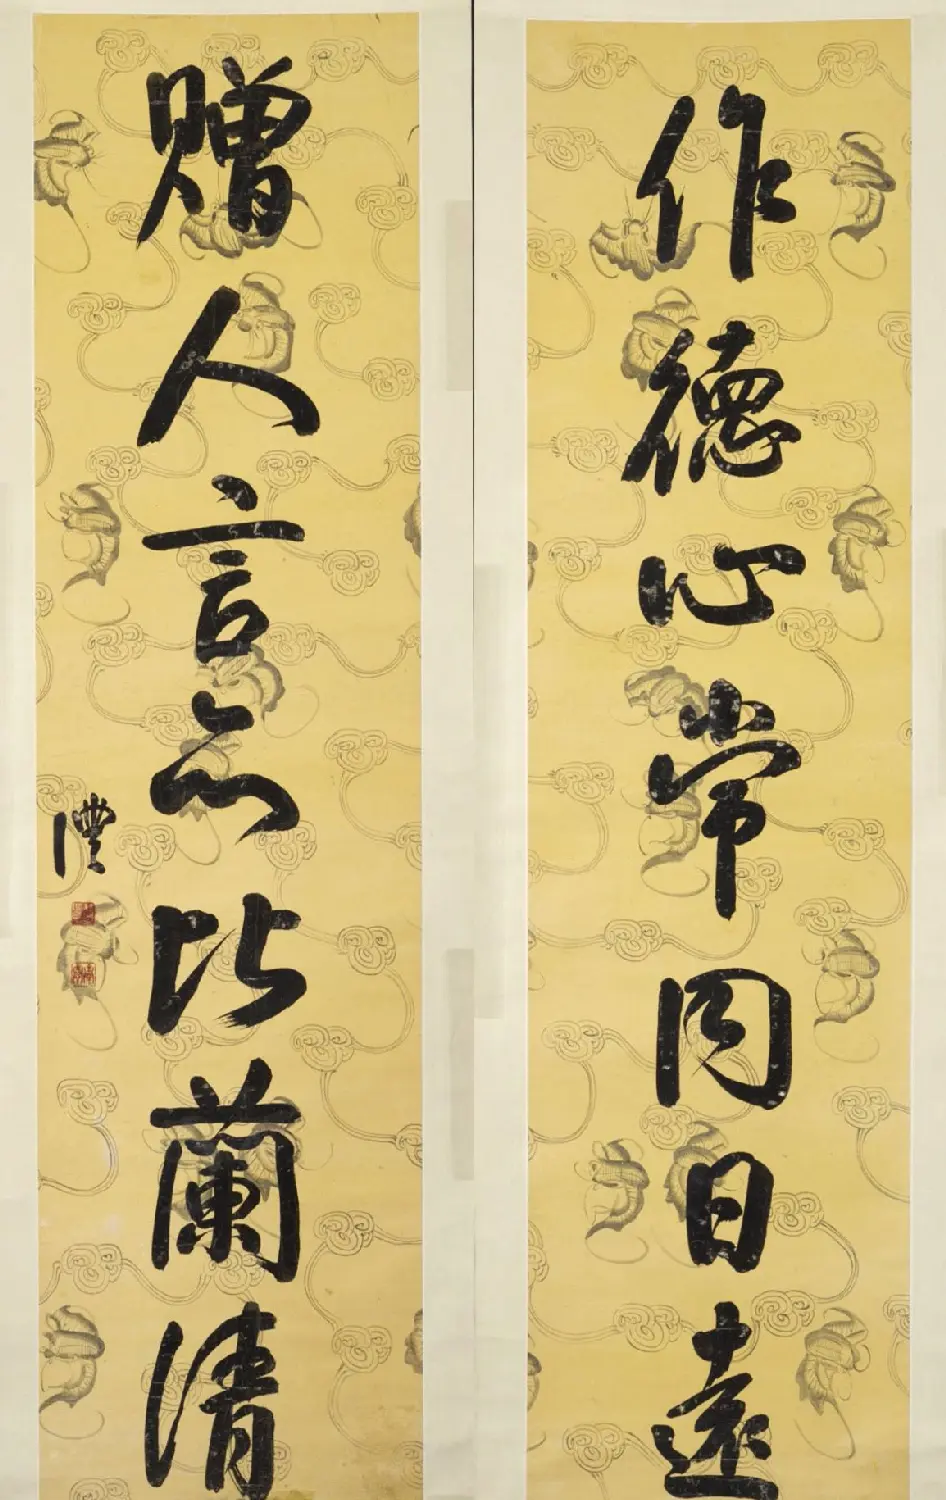 作德心常同日遠
贈人言亦比蘭清
澧